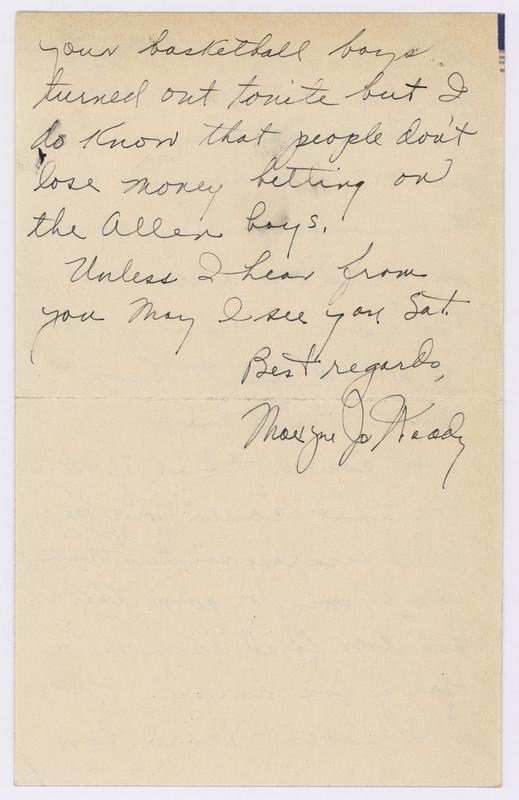 your basketball boys
turned out tonite but I
do know that people don't
lose money betting on
the Allen boys.
Unless I hear from
you May I see you Sat.
Best regards,
Jo